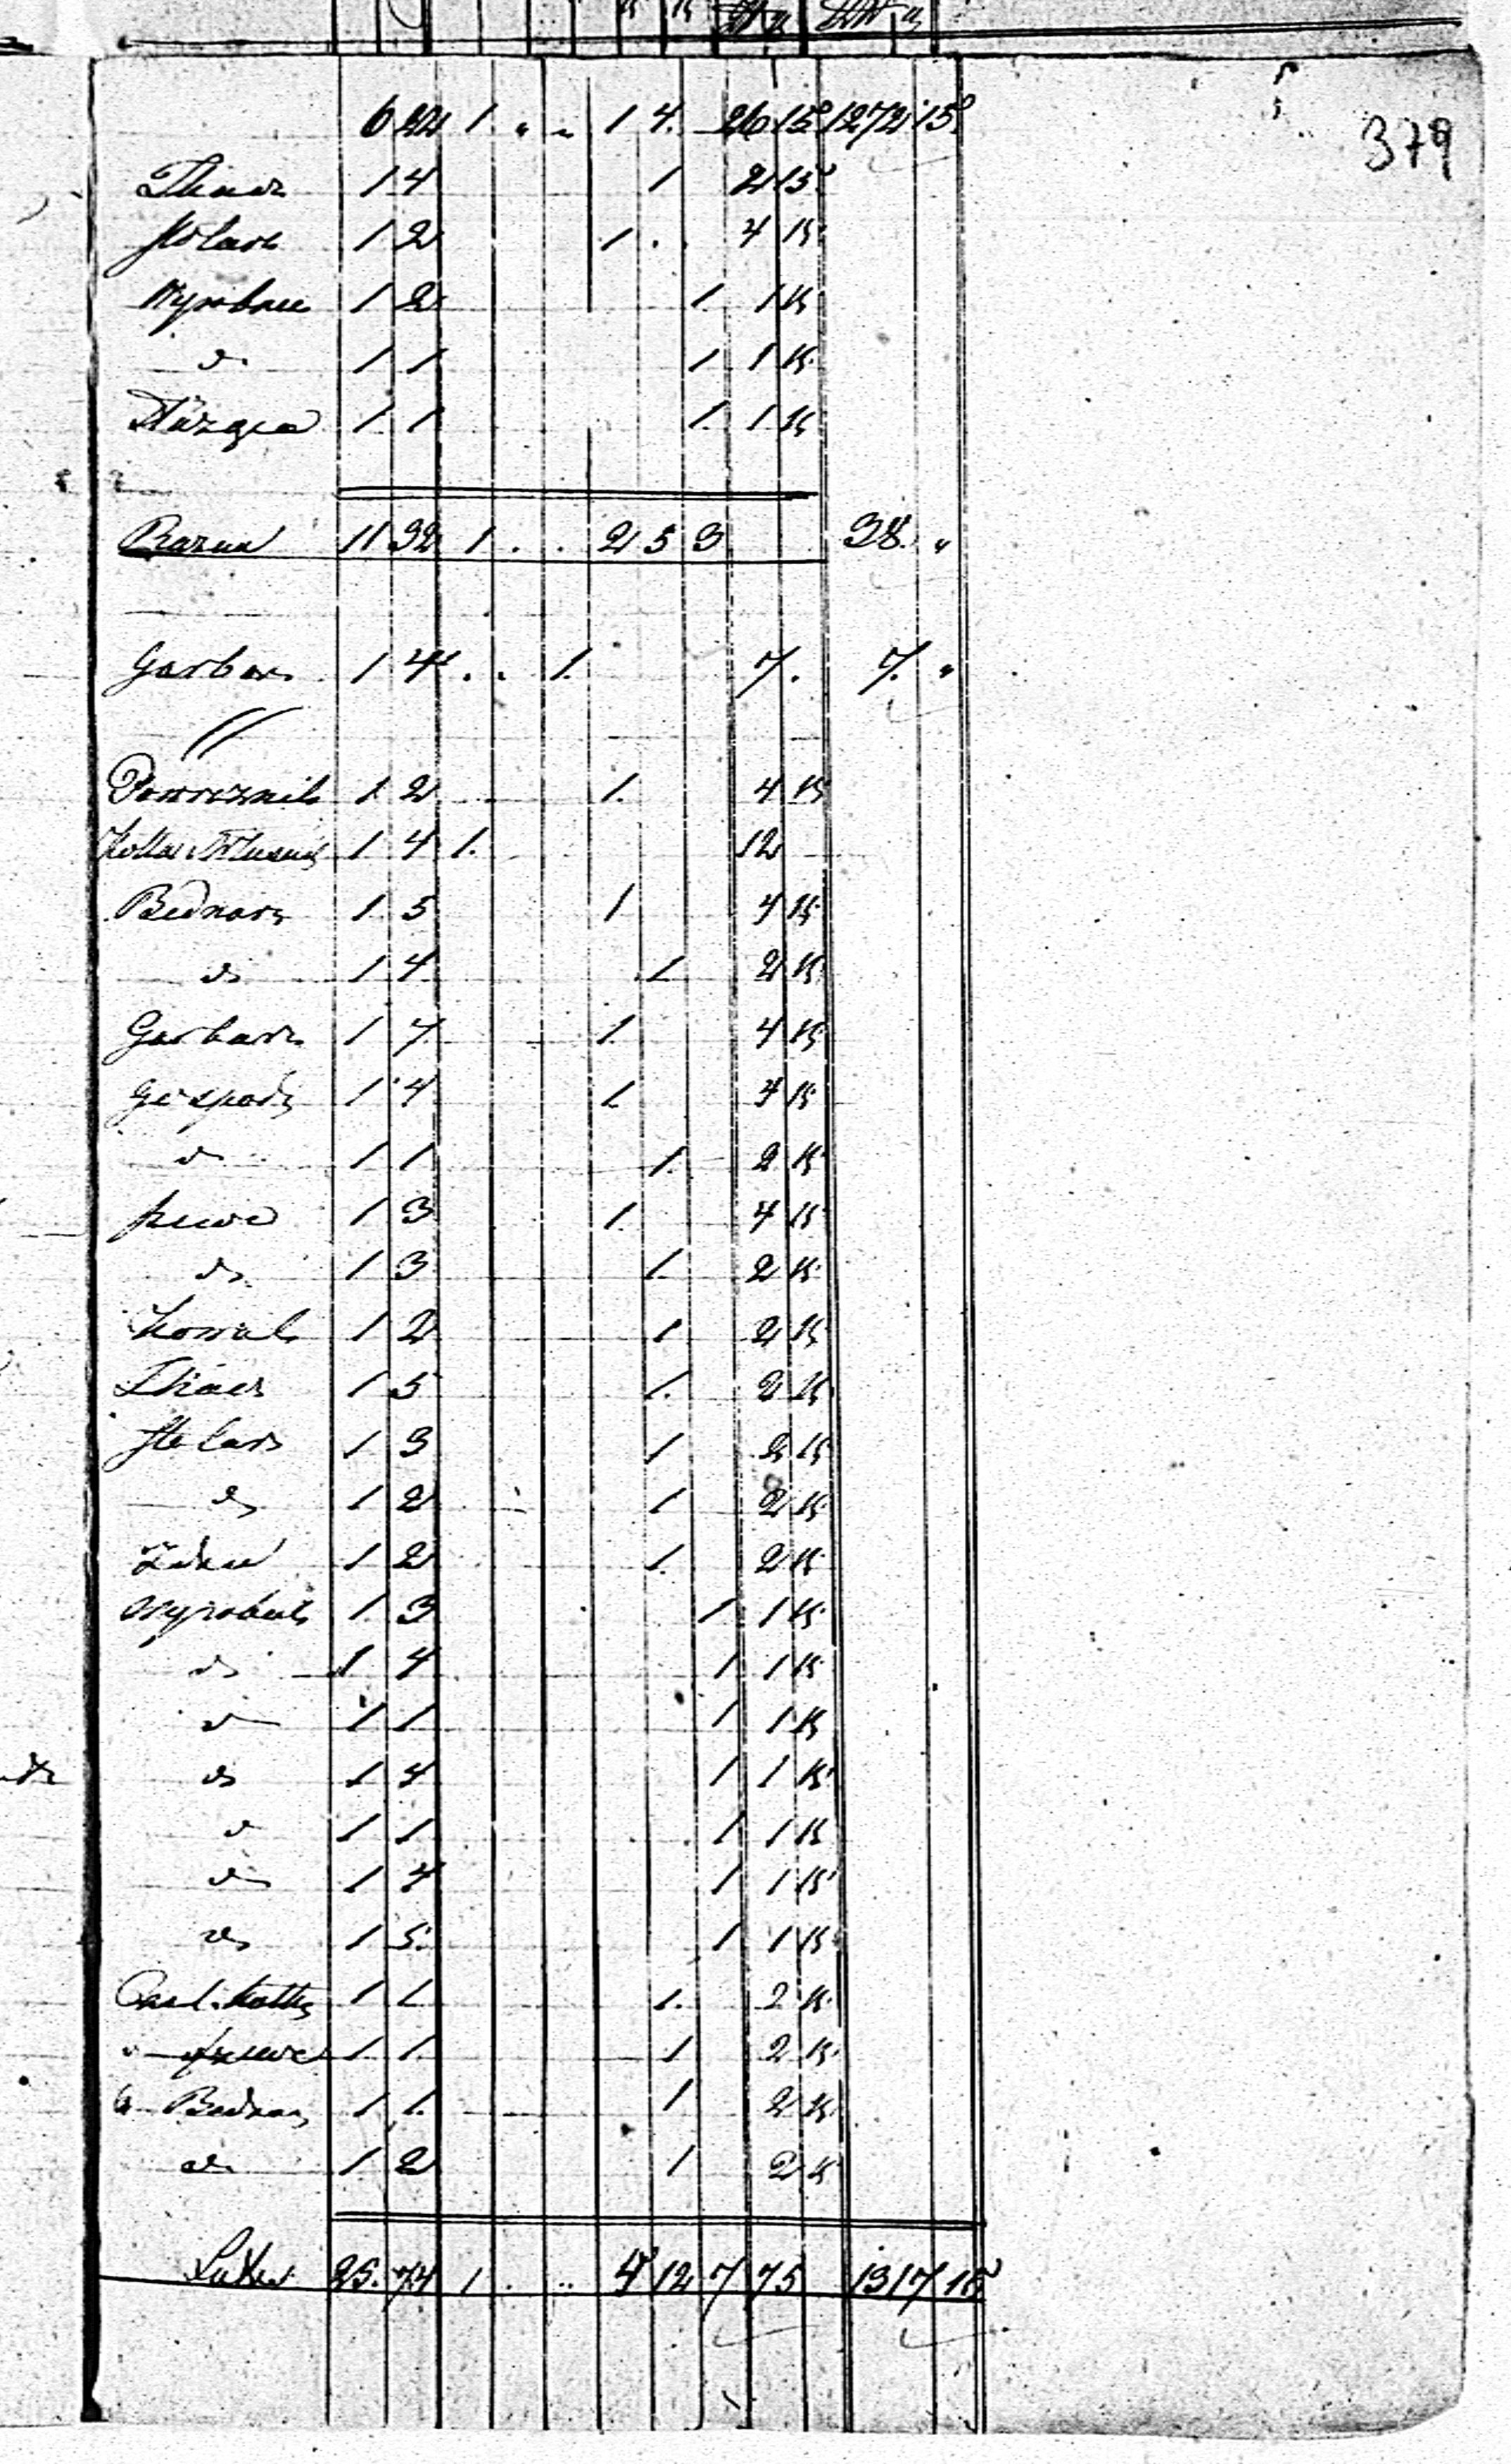 379
6 22 1 " " 1 4. 26 15 1272 15
Tkacz 1 4 1 2 15
Stolarz 1 2 1 4 15
Wyrobnik 1 2 1 1 15
d 1 1 1 1 15
1 1 1 1 15
Razem 11 32 1 . . 2 5 3 38. "
Garbarz 1 4 . . 1. 7. 7. "
Powroznik 1 2 1. 4 15
1 4 1. 12
Bednarz 1 5 1 4 15
do 1 4 1 2 15
Garbarz 1 7 1. 4 15
Gospodz 1 4 1 4 15
do 1 1 1. 2 15
szewc 1 3 1. 4 15
do 1 3 1. 2 15
Kowal 1 2 1 2 15
Tkacz 1 5 1. 2 15
Stolarz 1 3 1 2 15
do 1 2 1 2 15
1 2 1. 2 15
Wyrobnik 1 3 1 1 15
do 1 4 1 1 15
do 1 1 1 1 15
do 1 4 1 1 15
do 1 1 1 1 15
do 1 4 1 1 15
do 1 5. 1 1 15
1 1 1. 2 15
" szewc 1 1 1 2 15
" Bednarz 1 1. 1 2 15
do 1 2 1 2 15
Latus 25. 74 1 . .. 4 12 7 75 1317 15